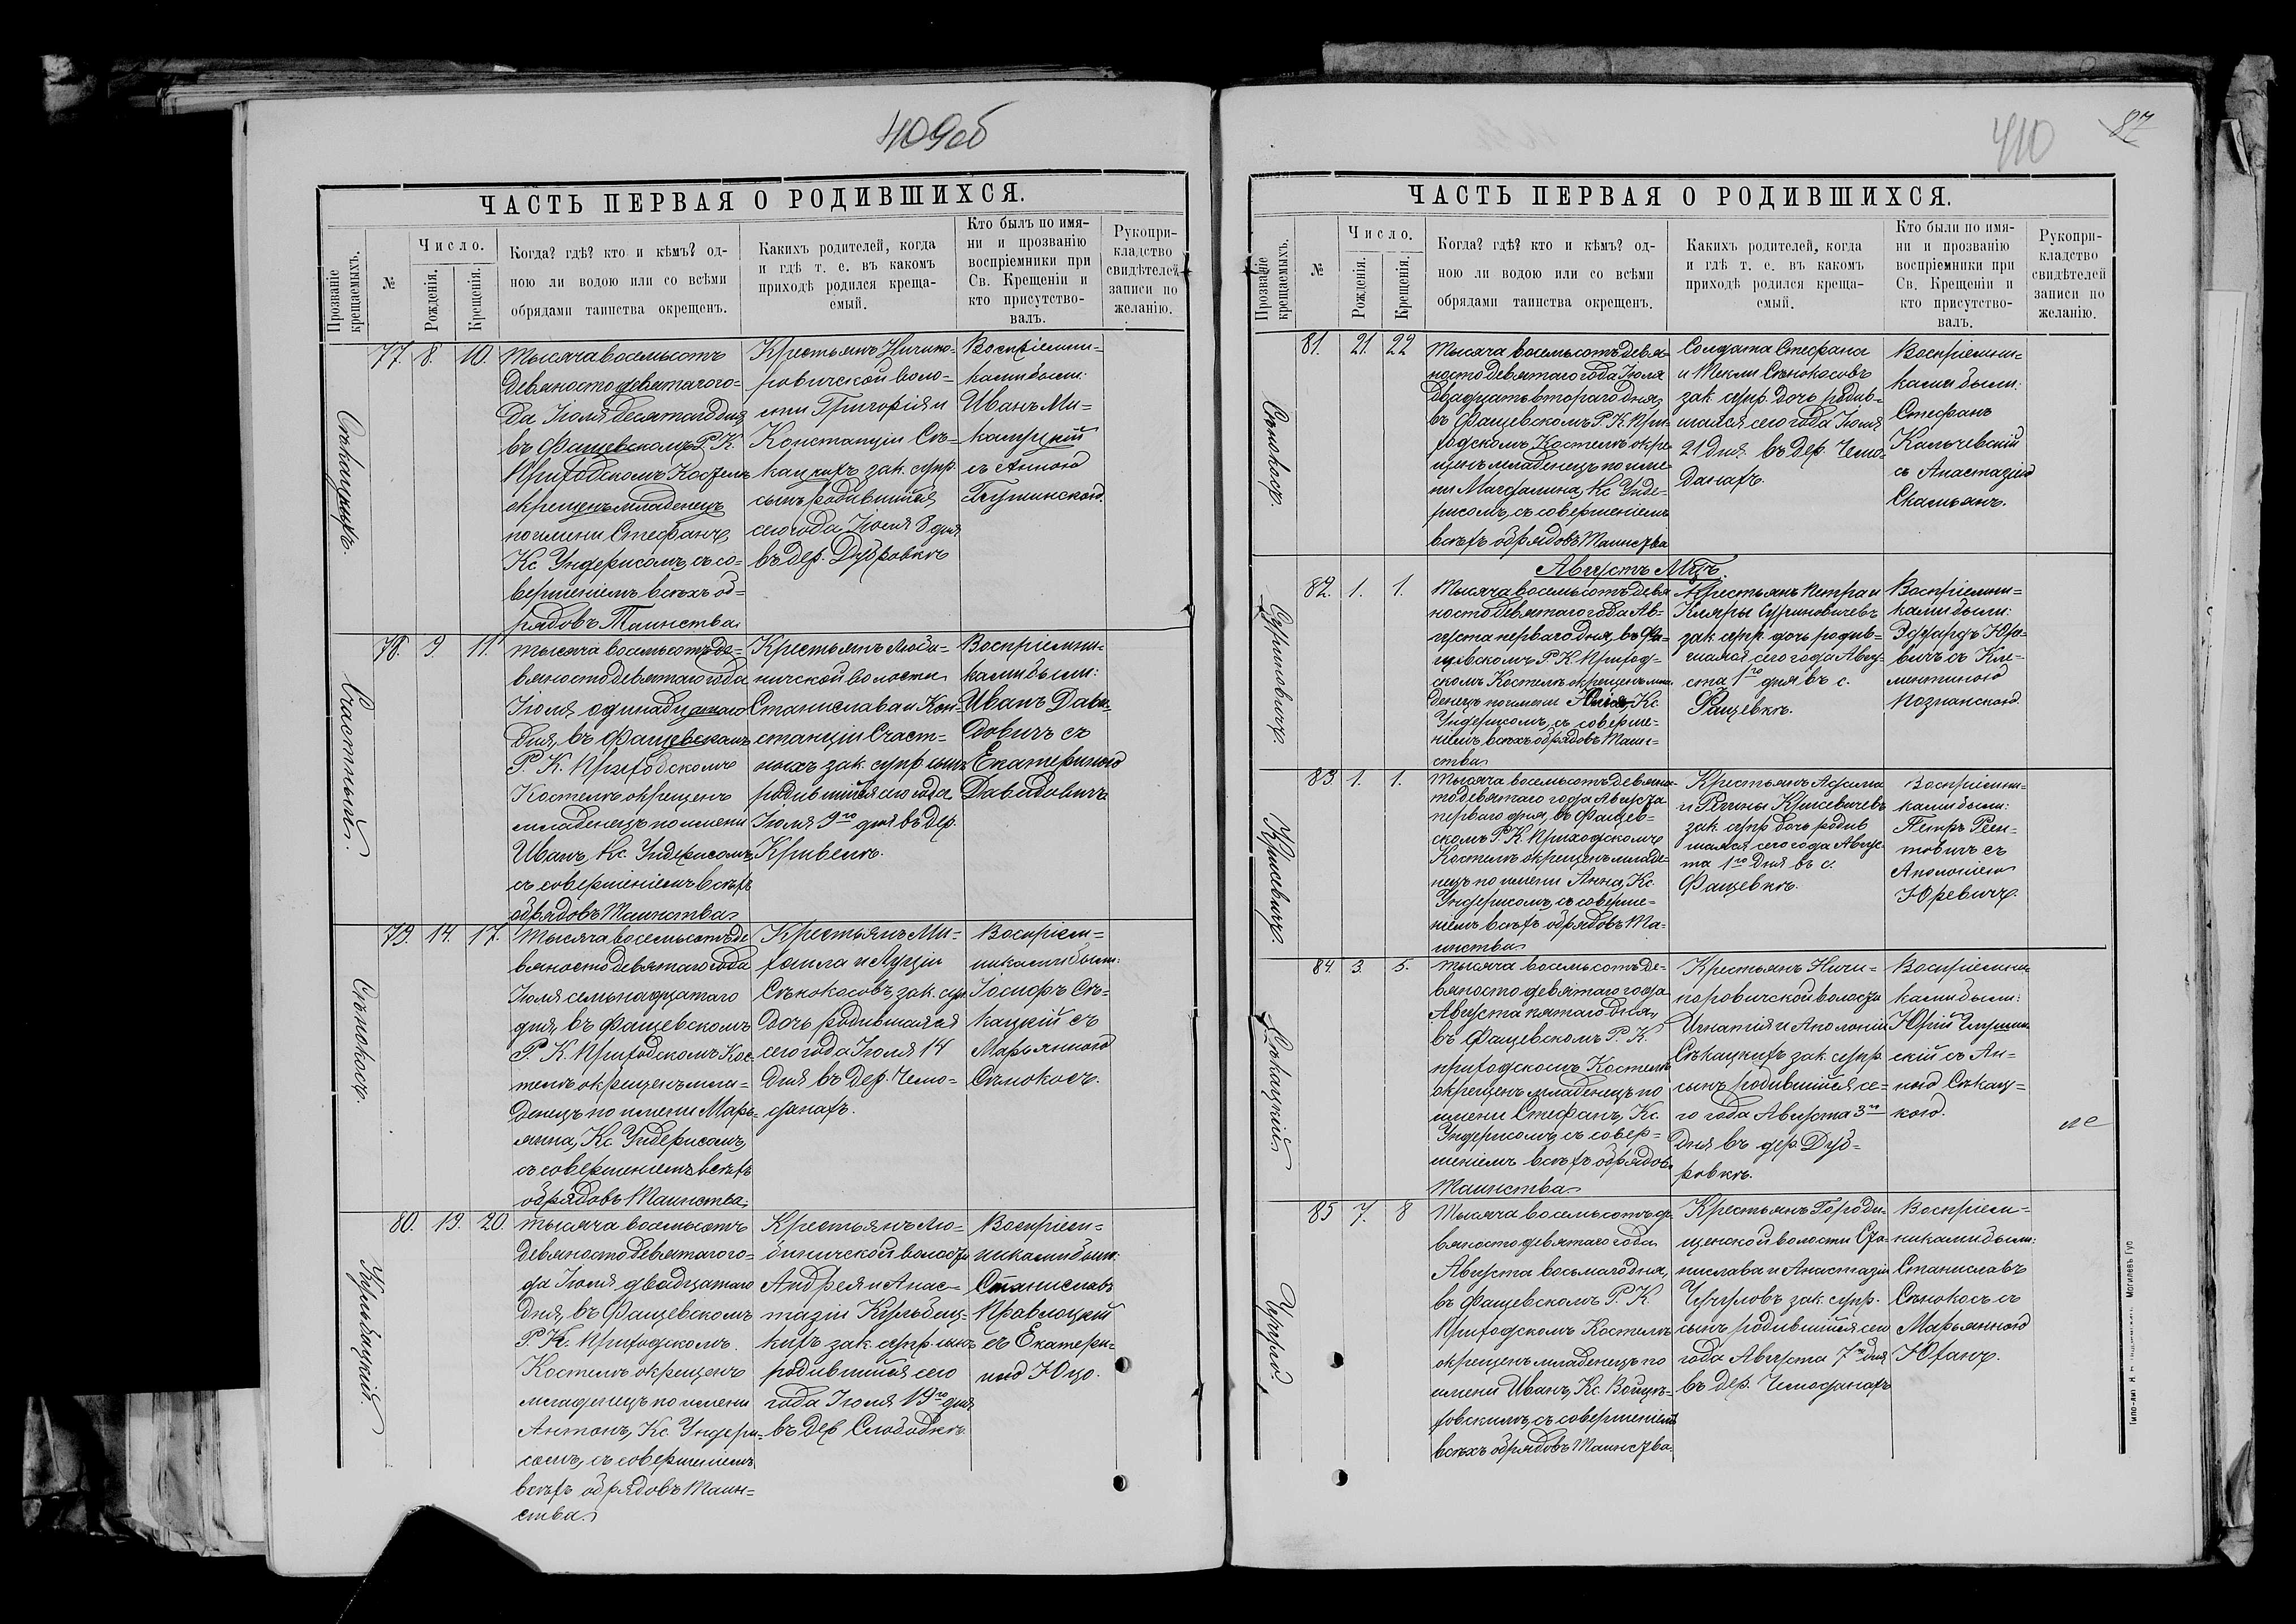 409об
ЧАСТЬ ПЕРВАЯ О РОДИВШИХСЯ.
Прозваніе крещаемыхъ.
№
Число.
Рожденія.
Крещенія.
Когда? гдѣ? кто и кѣмъ? од-
ною ли водою или со всѣми
обрядами таинства окрещенъ.
Какихъ родителей, когда
и гдѣ т. е. въ какомъ
приходѣ родился креща-
емый.
Кто былъ по имя-
ни и прозванію
воспріемники при
Св. Крещеніи и
кто присутство-
валъ.
Рукопри-
кладство
свидѣтелей
записи по
желанію.
77. 8. 10.
Тысяча восемьсотъ
девяносто девятаго го-
да Іюля десятаго дня
въ Фащевскомъ Р. К.
Приходскомъ Костелѣ
окрещенъ младенецъ
по имени Стефанъ,
Кс. Ундерисомъ, съ со-
вершеніемъ всѣхъ об-
рядовъ Таинства
Крестьянъ Ничипо-
ровичской воло-
сти Григорія и
Констанціи Сѣ-
кацкихъ зак. супр.
сынъ родившійся
сего года Іюля 8 дня
въ дер. Дубровкѣ
Воспріемни-
ками были:
Иванъ Ми-
с Анною
78. 9. 11.
Счастный.
Тысяча восемьсотъ де-
вяносто девятаго года
Іюля одинадцатаго
дня, въ Фащевскомъ
Р. К. Приходскомъ
Костелѣ окрещенъ
младенецъ по имени
Иванъ, Кс. Ундерисомъ,
съ совершеніемъ всѣхъ
обрядовъ Таинства
Крестьянъ Люби-
ничской волости
Станислава и Кон-
станціи Счаст-
ныхъ зак. супр. сынъ
родившійся сего года
Іюля 9го дня въ дер.
Кривелѣ.
Воспріемни-
ками были:
Иванъ Дави-
довичъ съ
Екатериною
Давидовичъ
79. 14. 17.
Сѣнокосъ.
Тысяча восемьсотъ де
вяносто девятаго года
Іюля семьнадцатаго
дня, въ Фащевскомъ
Р. К. Приходскомъ Кос-
телѣ окрещенъ мла-
денецъ по имени Марь-
янна, Кс. Ундерисомъ,
съ совершеніемъ всѣхъ
обрядовъ Таинства.
Крестьянъ Ми-
хаила и Луціи
Сѣнокосовъ, зак. супр.
дочь родившаяся
сего года Іюля 14
дня въ дер. Чемо-
данахъ.
Воспріем-
никами были:
Іосифъ Сѣ-
кацкій съ
Марьянною
Сѣнокосъ.
80. 19. 20.
Тысяча восемьсотъ
девяносто девятаго го-
да Іюля двадцатаго
дня, въ Фащевскомъ
Р. К. Приходскомъ
Костелѣ окрещенъ
младенецъ по имени
Антонъ, Кс. Ундери-
сомъ, съ совершеніемъ
всѣхъ обрядовъ Таин-
ства.
Крестьянъ Лю-
биничской волости
Андрея и Анас-
тазіи
зак. супр. сынъ
родившійся сего
года Іюля 19го дня
въ дер. Слободкѣ.
Воспріем-
никами были:
Станиславъ
съ Екатери-
ною Юцо.
410
87
ЧАСТЬ ПЕРВАЯ О РОДИВШИХСЯ.
Прозваніе крещаемыхъ.
№
Число.
Рожденія.
Крещенія.
Когда? гдѣ? кто и кѣмъ? од-
ною ли водою или со всѣми
обрядами таинства окрещенъ.
Какихъ родителей, когда
и гдѣ т. е. въ какомъ
приходѣ родился креща-
емый.
Кто были по имя-
ни и прозванію
воспріемники при
Св. Крещеніи и
кто присутство-
валъ.
Рукопри-
кладство
свидѣтелей
записи по
желанію.
81. 21. 22
Тысяча восемьсотъ девя-
носто девятаго года Іюля
двадцать втораго дня,
въ Фащевскомъ Р. К. При-
ходскомъ Костелѣ окре-
щенъ младенецъ по име-
ни Магдалина, Кс. Унде-
рисомъ, съ совершеніемъ
всѣхъ обрядовъ Таинства
Солдата Стефана
и Текли Сѣнокосовъ
зак. супр. дочь родив-
шаяся сего года Іюля
21 дня въ дер. Чемо-
данахъ.
Воспріемни-
ками были:
Стефанъ
Кальчевскій
съ Анастазіею
Скамьянъ.
Августъ Мцъ.
82. 1. 1.
Тысяча восемьсотъ девя
носто девятаго года Ав-
густа перваго дня, въ Фа-
щевскомъ Р. К. Приход-
скомъ Костелѣ окрещенъ мла
денецъ по имени Юлія, Кс.
Ундерисомъ, съ соверше-
ніемъ всѣхъ обрядовъ Таин-
ства
Крестьянъ Петра и
Кляры Суриновичевъ
зак. супр. дочь родив-
шаяся сего года Авгу-
ста 1го дня въ с.
Фащевкѣ.
Воспріемни-
ками были:
Эдуардъ Юре-
вичъ съ Кле-
ментиною
Познанскою.
83 1. 1.
Тысяча восемьсотъ девянос
то девятаго года Августа
перваго дня, въ Фащев-
скомъ Р. К. Приходскомъ
Костелѣ окрещенъ младе-
нецъ по имени Анна, Кс.
Ундерисомъ, съ соверше-
ніемъ всѣхъ обрядовъ Та-
инства
Крестьянъ Адама
и Регины Крисевичевъ
зак. супр. дочь родив
шаяся сего года Авгус-
та 1го дня въ с.
Фащевкѣ.
Воспріемни-
ками были:
Петръ
съ
Аполоніею
Юревичъ.
84. 3. 5.
Сѣкацкій.
Тысяча восемьсотъ де-
вяносто девятаго года
Августа пятаго дня,
въ Фащевскомъ Р. К.
приходскомъ Костелѣ
окрещенъ младенецъ по
имени Стефанъ, Кс.
Ундерисомъ, съ совер-
шеніемъ всѣхъ обрядовъ
Таинства
Крестьянъ Ничи-
поровичской волости
Игнатія и Аполоніи
Сѣкацкихъ зак. супр.
сынъ родившійся се-
го года Августа 3го
дня въ дер. Дуб-
ровкѣ.
Воспріемни-
ками были:
Юрій Глушин-
скій съ Ан-
ною Сѣкац-
кою.
85 7. 8
Тысяча восемьсотъ де-
вяносто девятаго года
Августа восьмаго дня,
въ Фащевскомъ Р. К.
Приходскомъ Костелѣ
окрещенъ младенецъ по
имени Иванъ, Кс. Войцѣ-
ховскимъ, съ совершеніемъ
всѣхъ обрядовъ Таинства.
Крестьянъ Городи-
щенской волости Ста-
нислава и Анастазіи
зак. супр.
сынъ родившійся сего
года Августа 7го дня
въ дер. Чемоданахъ
Воспріем-
никами были:
Станиславъ
Сѣнокосъ съ
Марьянною
Юханъ.